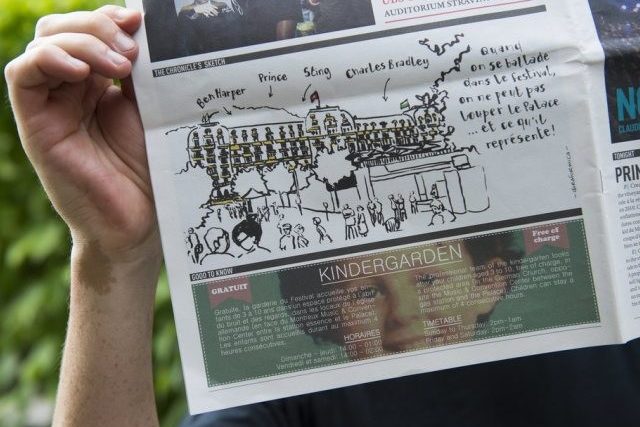 AUDITORIUM STRAVIN
THE CHRONICLE'S SKETCH
Ben Harper
Prince
Sting
Charles Bradley
Quand
on se ballade
dans le festival,
on ne peut pas
louper le Palace
... et ce qu'il
représente!
NO
CLAUD
TONIGHT
PRIN
GOOD TO KNOW
KINDERGARDEN
GRATUIT
Free of
charge
Gratuite, la garderie du Festival accueille vos en-
fants de 3 à 10 ans dans un espace protégé à l'abri
du bruit et des regards, dans les locaux de l'église
allemande (en face du Montreux Music & Conven-
tion Center, entre la station essence et le Palace).
Les enfants sont accueillis durant au maximum 4
heures consécutives.
HORAIRES
Dimanche - jeudi: 14:00 - 01:00
Vendredi et samedi: 14:00 - 02:00
The professional team of the kindergarten looks
after your children aged 3 to 10, free of charge, in
a safe and quiet area of the German Church, oppo-
site the Music & Convention Center between the
gas station and the Palace. Children can stay a
maximum of 4 consecutive hours.
TIMETABLE
Sunday to Thursday: 2pm-1am
Friday and Saturday: 2pm-2am